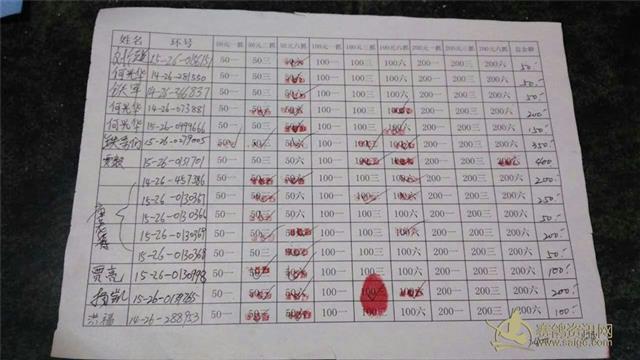 姓名 环号 50元一抓 50元三抓 50元六抓 100元一抓 100元三抓 100元六抓 200元一抓 200元三抓 200元六抓 总金额
50一 50三 50六 100一 100三 100六 200一 200三 200六 50
何光华 14-26-281550 50一 50三 50六 100一 100三 100六 200一 200三 200六 50
14-26-366837 50一 50三 50六 100一 100三 100六 200一 200三 200六 50
何光华 14-26-073881 50一 50三 50六 100一 100三 100六 200一 200三 200六 200
何光华 15-26-0499666 50一 50三 50六 100一 100三 100六 200一 200三 200六 150
15-26-0279005 50一 50三 50六 100一 100三 100六 200一 200三 200六 350
15-26-0131701 50一 50三 50六 100一 100三 100六 200一 200三 200六 400
14-26-457386 50一 50三 50六 100一 100三 100六 200一 200三 200六 200
15-26-0130367 50一 50三 50六 100一 100三 100六 200一 200三 200六 250
15-26-0130366 50一 50三 50六 100一 100三 100六 200一 200三 200六 50
15-26-0130369 50一 50三 50六 100一 100三 100六 200一 200三 200六 200
15-26-0130368 50一 50三 50六 100一 100三 100六 200一 200三 200六 50
贾亮 15-26-0130998 50一 50三 50六 100一 100三 100六 200一 200三 200六 100
50一 50三 50六 100一 100三 100六 200一 200三 200六 200
洪福 14-26-288953 50一 50三 50六 100一 100三 100六 200一 200三 200六 100
赛鸽资讯网
www.saige.com